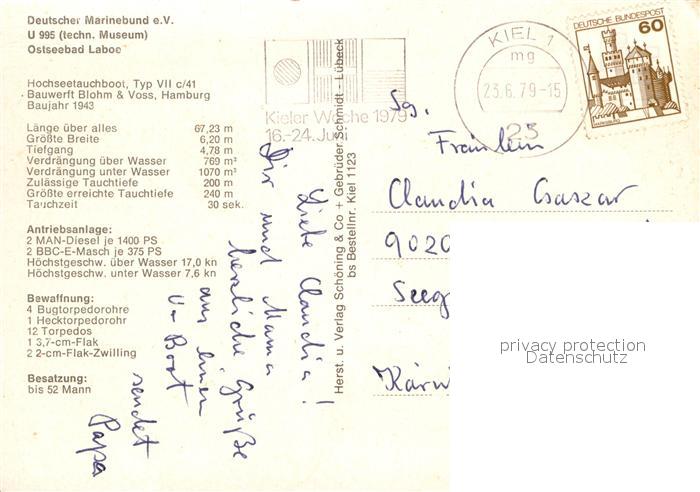 Deutscher Marinebund e.V.
U 995 (techn. Museum)
Ostseebad Laboe
Hochseetauchboot, Typ VII c/41
Bauwerft Blohm & Voss, Hamburg
Baujahr 1943
Länge über alles 67,23 m
Größte Breite 6,20 m
Tiefgang 4,78 m
Verdrängung über Wasser 769 m³
Verdrängung unter Wasser 1070 m³
Zulässige Tauchtiefe 200 m
Größte erreichte Tauchtiefe 240 m
Tauchzeit 30 sek.
Antriebsanlage:
2 MAN-Diesel je 1400 PS
2 BBC-E-Masch je 375 PS
Höchstgeschw. über Wasser 17,0 kn
Höchstgeschw. unter Wasser 7,6 kn
Bewaffnung:
4 Bugtorpedorohre
1 Hecktorpedorohr
12 Torpedos
1 3,7-cm-Flak
2 2-cm-Flak-Zwilling
Besatzung:
bis 52 Mann
Liebe Claudia!
Dir und Mama
herzliche Grüße
aus einem
U-Boot
sendet
Papa
Herst. u. Verlag Schöning & Co + Gebrüder Schmidt - Lübeck
bs Bestellnr. Kiel 1123
Kieler Woche 1979
16.-24. Juni
KIEL 1
mg
23.6.79-15
23
DEUTSCHE BUNDESPOST
60
Sg.
Fräulein
Claudia Csaszar
9020
Seeg
Kärn
privacy protection
Datenschutz